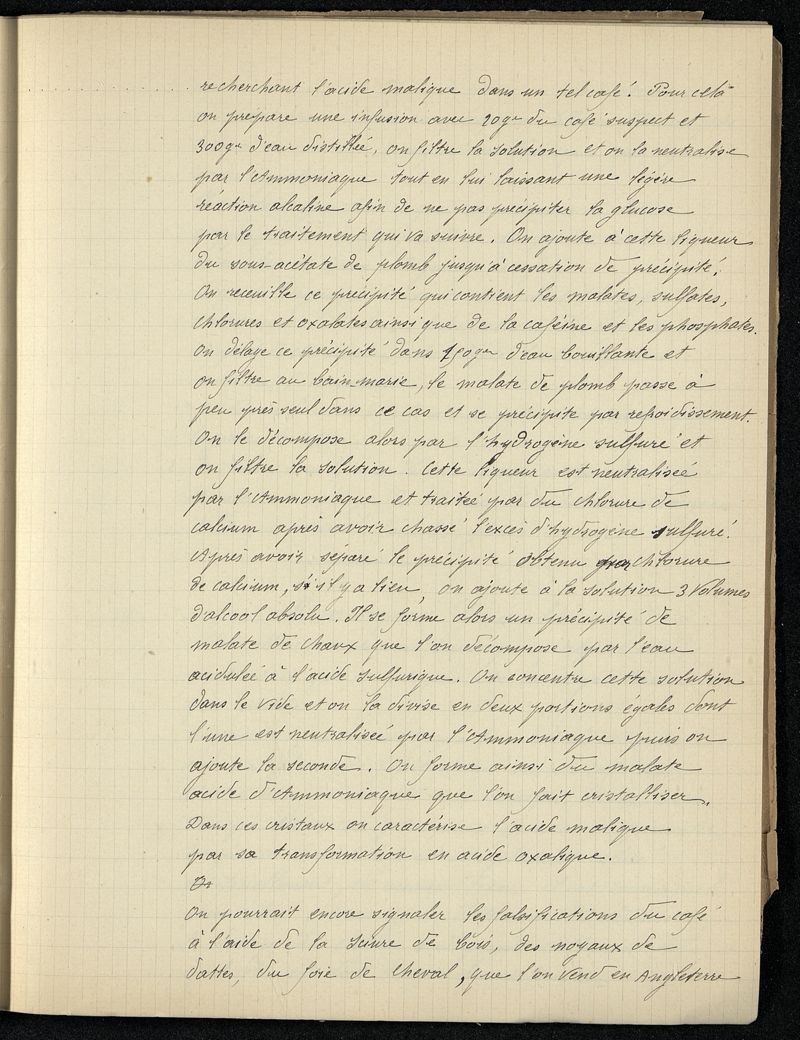 recherchant l'acide malique dans un tel café. Pour cela
on prépare une infusion avec 20gr du café suspect et
300gr d'eau distillée, on filtre la solution et on la neutralise
par l'Ammoniaque tout en lui laissant une légère
réaction alcaline afin de ne pas précipiter la glucose
par le traitement qui va suivre. On ajoute à cette liqueur
du sous-acétate de plomb jusqu'à cessation de précipité.
On receuille ce précipité qui contient les malates, sulfates,
chlorures et oxalates ainsi que de la caféine et les phosphates.
On délaye ce précipité dans 150gr d'eau bouillante et
on filtre au bain-marie, le malate de plomb passe à
peu près seul dans ce cas et se précipite par refroidissement.
On le décompose alors par l'hydrogène sulfuré et
on filtre la solution. Cette liqueur est neutralisée
par l'Ammoniaque et traitée par du chlorure de
calcium après avoir chassé l'excès d'hydrogène sulfuré.
Après avoir séparé le précipité obtenu par chlorure
de calcium, s'il y a lieu, on ajoute à la solution 3 Volumes
d'alcool absolu. Il se forme alors un précipité de
malate de chaux que l'on décompose par l'eau
acidulée à l'acide sulfurique. On concentre cette solution
dans le vide et on la divise en deux portions égales dont
l'une est neutralisée par l'Ammoniaque puis on
ajoute la seconde. On forme ainsi du malate
acide d'Ammoniaque que l'on fait cristalliser.
Dans ces cristaux on caractérise l'acide malique
par sa transformation en acide oxalique.
On pourrait encore signaler les falsifications du café
à l'aide de la sciure de bois, des noyaux de
dattes, du foie de cheval, que l'on vend en Angleterre